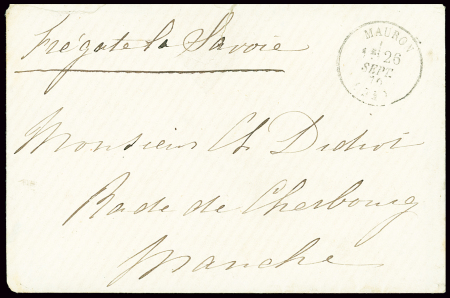 Frégate la Savoie
MAURON
26
SEPT.
Monsieur Ch. Didiot
Rade de Cherbourg
Manche